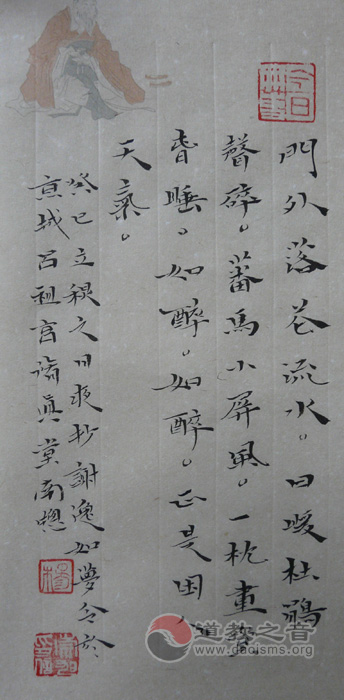 門外落花流水。日暖杜鵑
聲碎。蕃馬小屏風。一枕畫堂
春睡。如醉。如醉。正是困人
天氣。
癸巳立秋之日夜抄謝逸如夢令於
京城呂祖宮真堂南牕
道教之音
www.daoisms.org